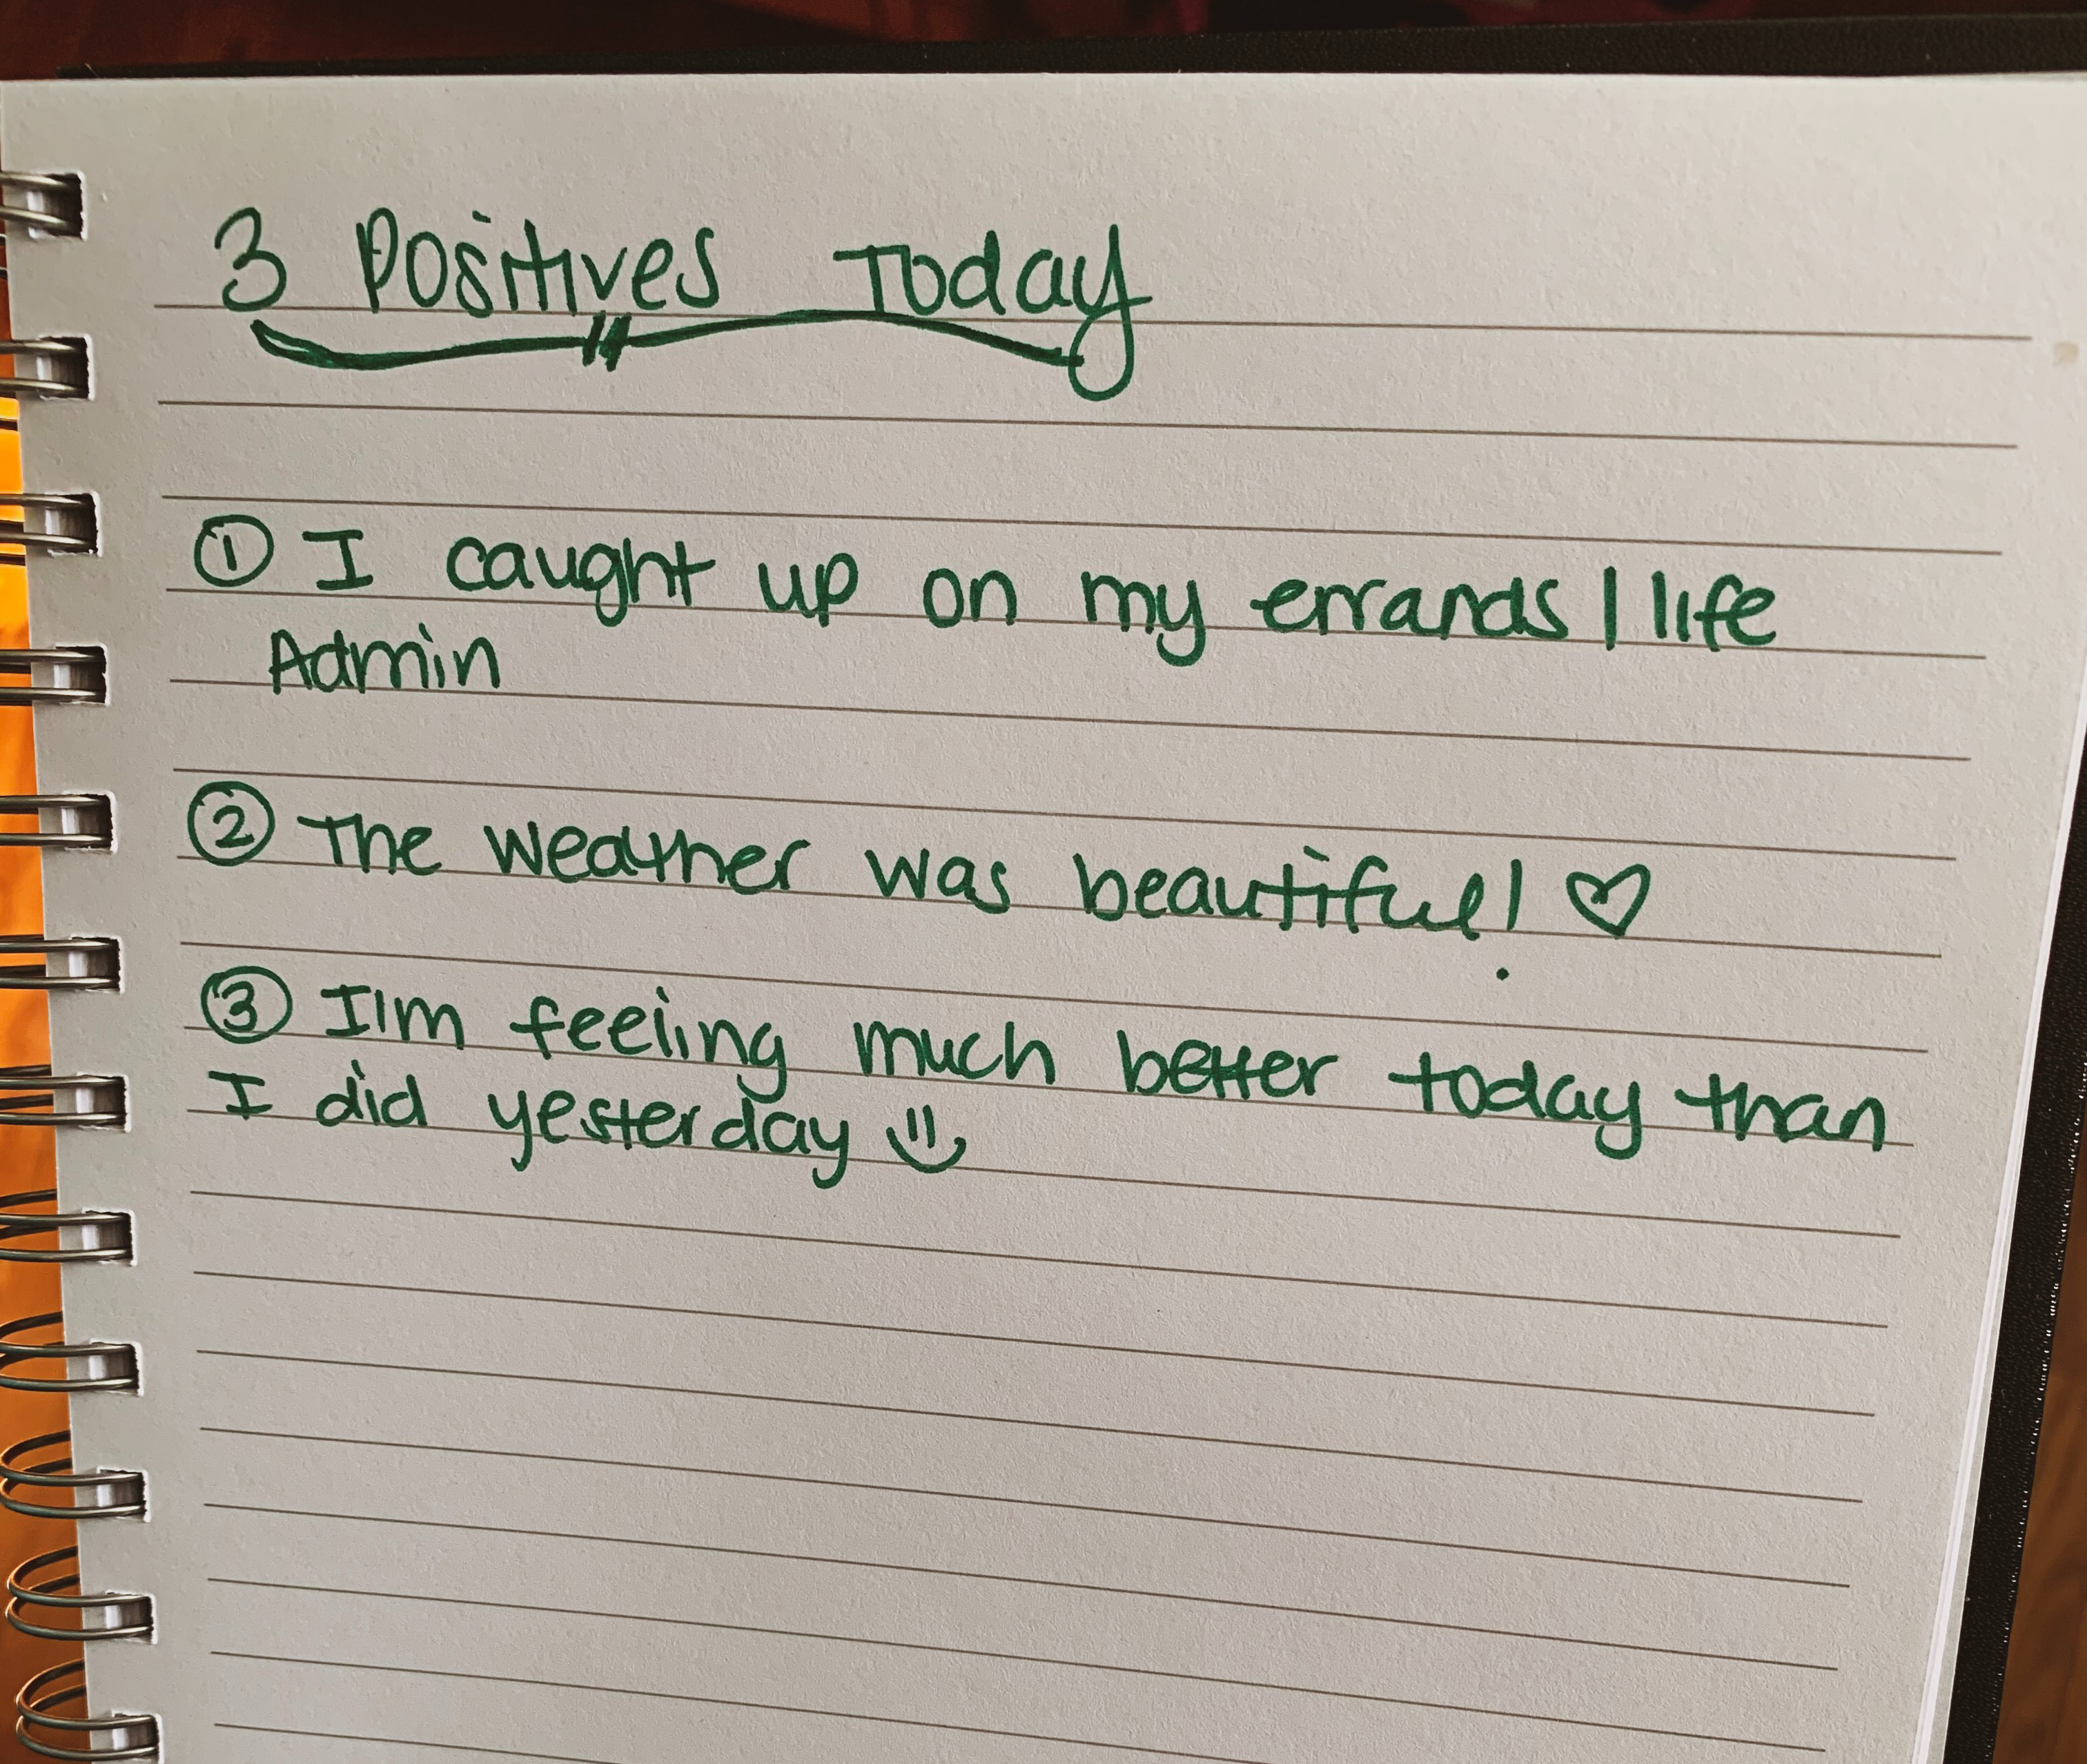 3 Positives Today
① I caught up on my errands / life
Admin
② The weather was beautiful! ♡
③ I'm feeling much better today than
I did yesterday :)